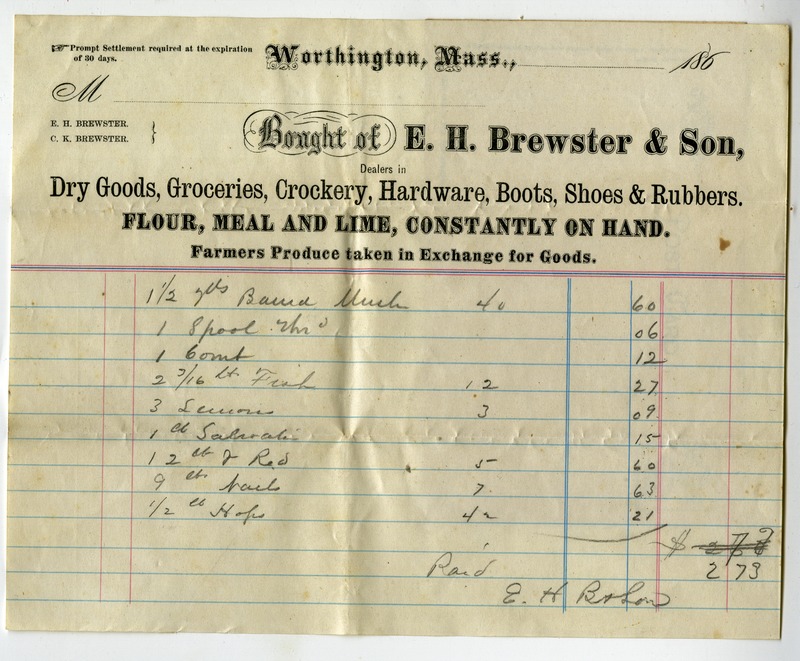 ☞ Prompt Settlement required at the expiration
of 30 days.
Worthington, Mass., 186
M
E. H. BREWSTER.
C. K. BREWSTER. }
Bought of E. H. Brewster & Son,
Dealers in
Dry Goods, Groceries, Crockery, Hardware, Boots, Shoes & Rubbers.
FLOUR, MEAL AND LIME, CONSTANTLY ON HAND.
Farmers Produce taken in Exchange for Goods.
1 1/2 yds 40 60
1 Spool Thrd 06
1 Comb 12
2 3/16 lb Fish 12 27
3 Lemons 3 09
1 15
12 lb Red 5 60
9 lbs Nails 7 63
1/2 lb Hops 42 21
$
2 73
Paid
E. H B & Son